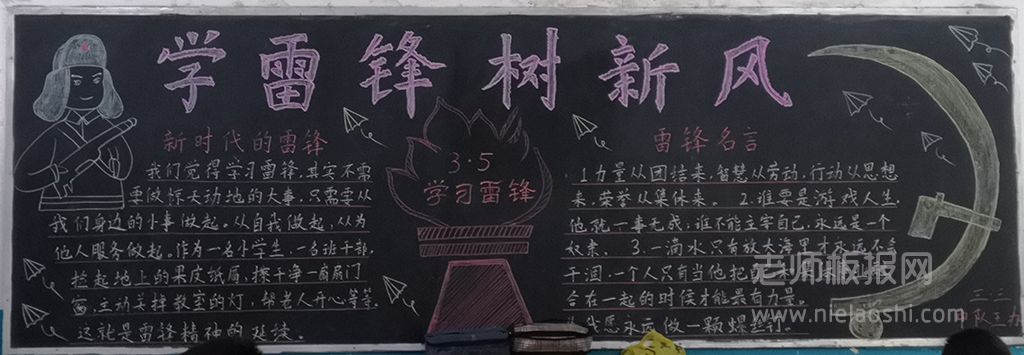 学雷锋树新风
新时代的雷锋
我们觉得学习雷锋,其实不需
要做惊天动地的大事,只需要从
我们身边的小事做起。从自我做起,从为
他人服务做起,作为一名小学生,一名班干部,
捡起地上的果皮纸屑,擦干净一扇扇门
窗,主动关掉教室的灯,帮老人开心等等
这就是雷锋精神的延续。
3·5
学习雷锋
雷锋名言
1.力量从团结来,智慧从劳动,行动从思想
来,荣誉从集体来。2.谁要是游戏人生,
他就一事无成,谁不能主宰自己,永远是一个
奴隶。3.一滴水只有放大海里才永远不会
干涸,一个人只有当他把
合在一起的时候才能最有力量。
我愿永远做一颗螺丝钉。
三二
中队主办
老师板报网
www.nielaoshi.com